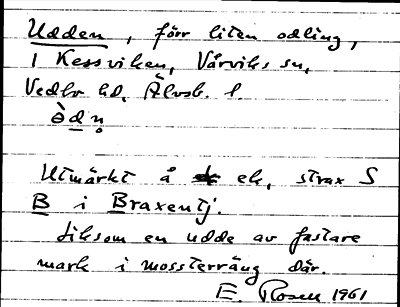 Udden, förr liten odling,
i Kessviken, Vårviks sn,
Vedbo hd, Älvsb. l.
ò̀dn̥
Utmärkt å ek, strax S
B i Braxentj.
Liksom en udde av fastare
mark i mossterräng där.
E. Rosell 1961